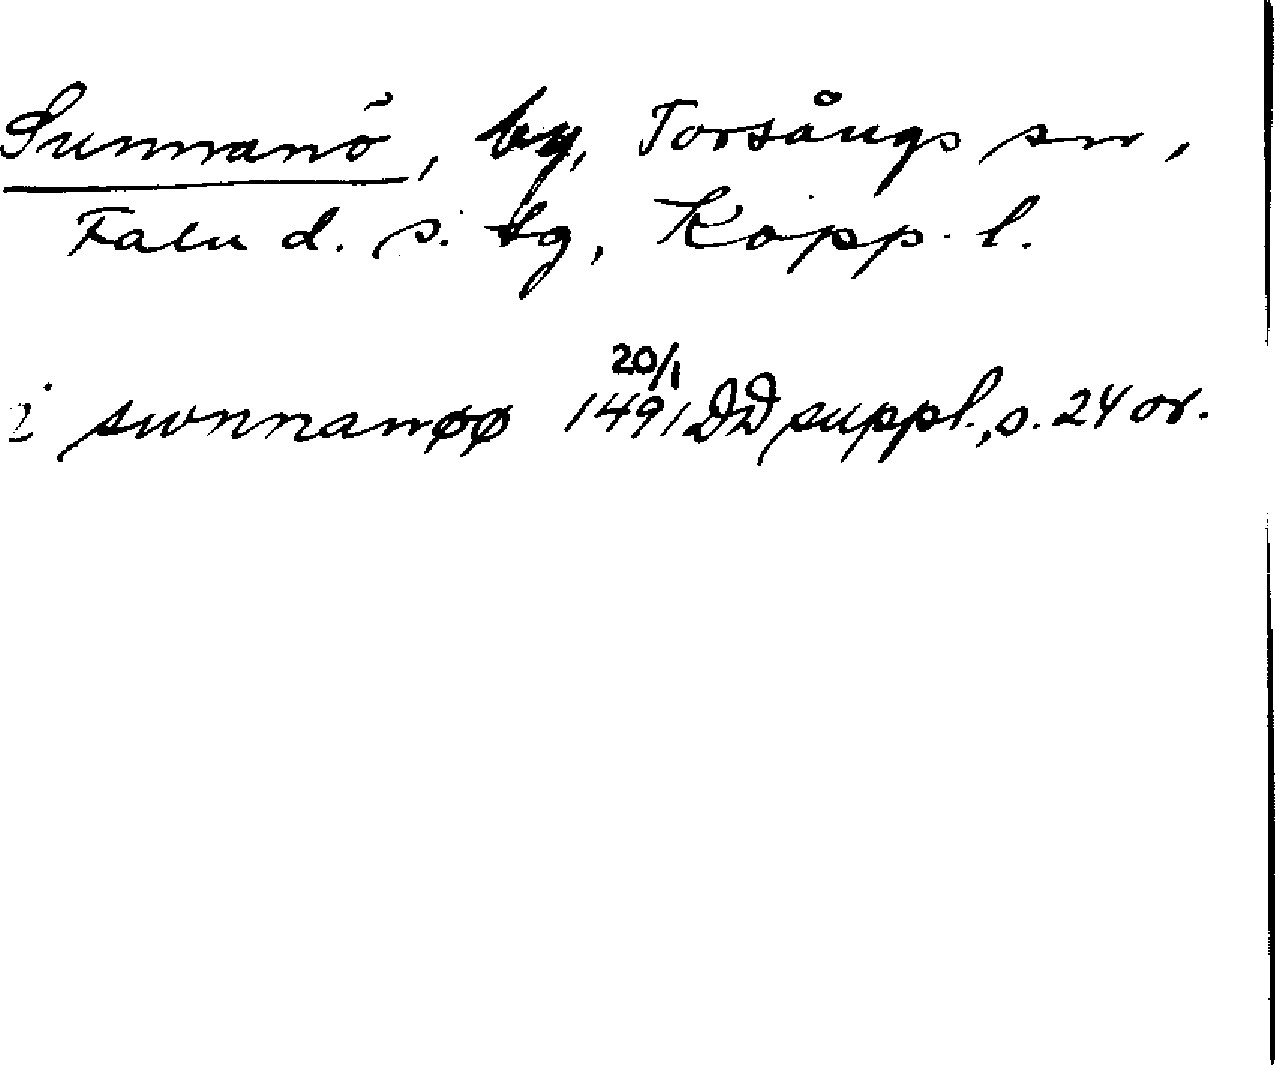 Sunnanö, by, Torsångs sn,
Falu d. s. tg, Kopp. l.
20/1
i swnnanøø 1491 DD suppl., s. 24 or.